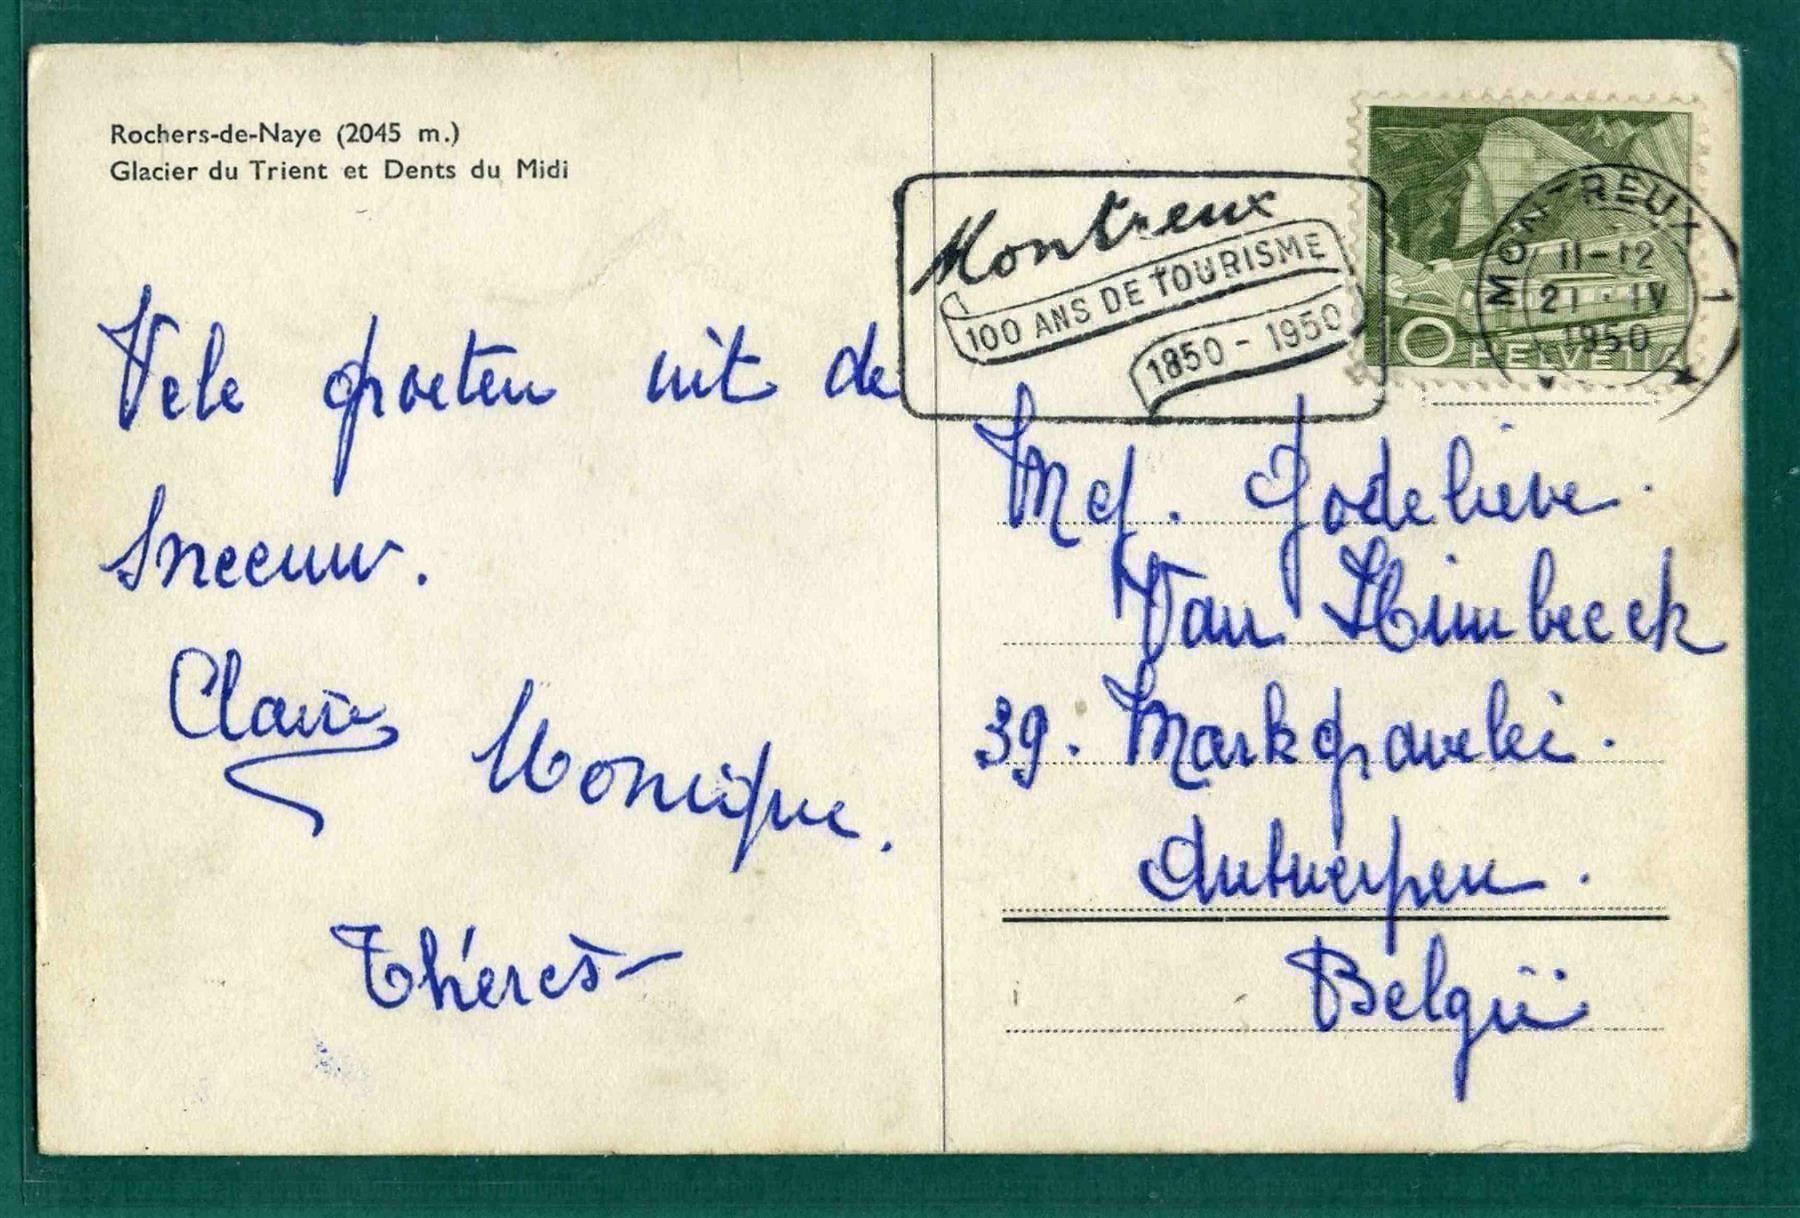 Rochers-de-Naye (2045 m.)
Glacier du Trient et Dents du Midi
Vele groeten uit de
sneeuw.
Claire
Monique.
Thérès
Montreux
100 ANS DE TOURISME
1850 - 1950
MONTREUX 1
11-12
21·IV
1950
10 HELVETIA
Mej. Godelieve.
Van Himbeeck
39. Markgravelei.
Antwerpen.
België